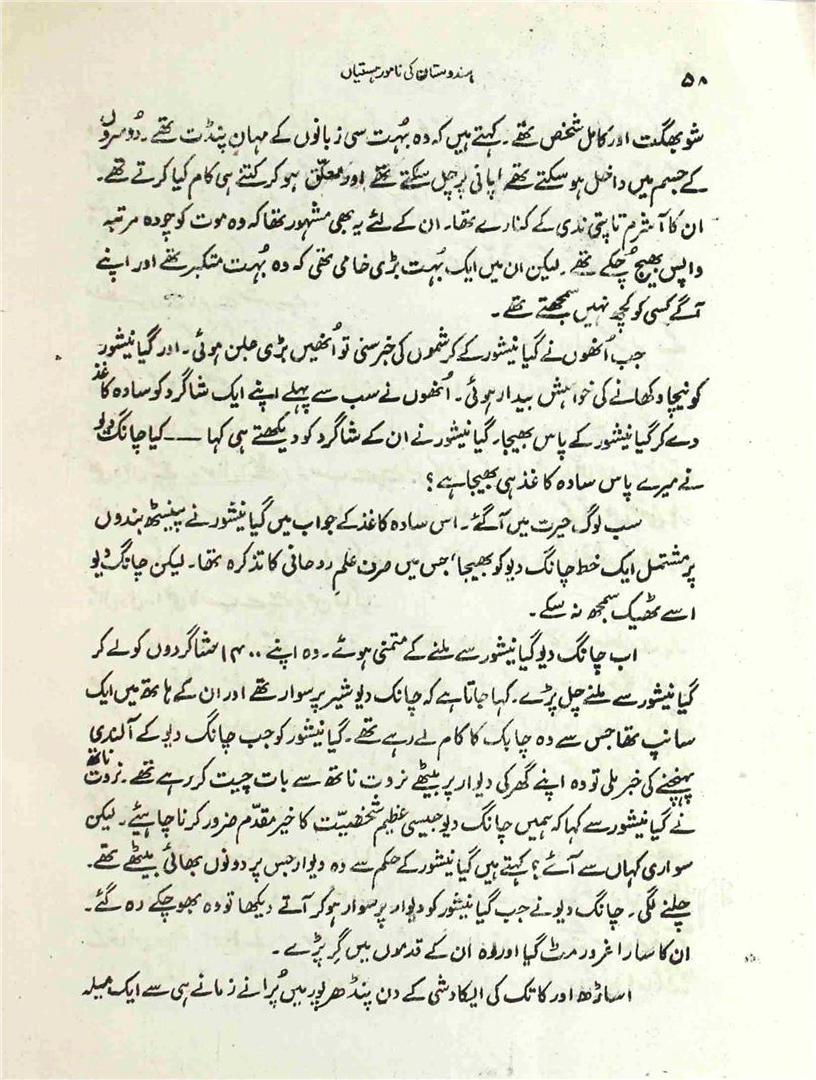 ۵۸
ہندوستان کی نامور ہستیاں
شو بھگت اور کامل شخص تھے۔ کہتے ہیں کہ وہ بُہت سی زبانوں کے مہان پنڈت تھے۔ دُوسروں
کے جسم میں داخل ہو سکتے تھے اپانی پر چل سکتے تھے اور معلّق ہو کر کتنے ہی کام کیا کرتے تھے۔
ان کا آشرم تاپتی ندی کے کنارے تھا۔ ان کے لئے یہ بھی مشہور تھا کہ وہ موت کو چودہ مرتبہ
واپس بھیج چُکے تھے۔ لیکن ان میں ایک بُہت بڑی خامی تھی کہ وہ بُہت متکبر تھے اور اپنے
آگے کسی کو کچھ نہیں سمجھتے تھے۔
جب اُنھوں نے گیانیشور کے کرشموں کی خبر سنی تو اُنھیں بڑی جلن ہوئی۔ اور گیانیشور
کو نیچا دکھانے کی خواہش بیدار ہوئی۔ اُنھوں نے سب سے پہلے اپنے ایک شاگرد کو سادہ کاغذ
دے کر گیانیشور کے پاس بھیجا۔ گیانیشور نے ان کے شاگرد کو دیکھتے ہی کہا —— کیا چانگ دیو
نے میرے پاس سادہ کاغذ ہی بھیجا ہے؟
سب لوگ حیرت میں آگئے۔ اس سادہ کاغذ کے جواب میں گیانیشور نے پینسٹھ بندوں
پر مشتمل ایک خط چانگ دیو کو بھیجا، جس میں صرف علمِ روحانی کا تذکرہ تھا۔ لیکن چانگ دیو
اسے ٹھیک سمجھ نہ سکے۔
اب چانگ دیو گیانیشور سے ملنے کے متمنی ہوئے۔ وہ اپنے ۱۴۰۰ شاگردوں کو لے کر
گیانیشور سے ملنے چل پڑے۔ کہا جاتا ہے کہ چانگ دیو شیر پر سوار تھے اور ان کے ہاتھ میں ایک
سانپ تھا جس سے وہ چابک کا کام لے رہے تھے۔ گیانیشور کو جب چانگ دیو کے آلندی
پہنچنے کی خبر ملی تو وہ اپنے گھر کی دیوار پر بیٹھے نروت ناتھ سے بات چیت کر رہے تھے۔ نروت ناتھ
نے گیانیشور سے کہا کہ ہمیں چانگ دیو جیسی عظیم شخصیّت کا خیر مقدّم ضرور کرنا چاہیئے۔ لیکن
سواری کہاں سے آئے؟ کہتے ہیں گیانیشور کے حکم سے وہ دیوار جس پر دونوں بھائی بیٹھے تھے۔
چلنے لگی۔ چانگ دیو نے جب گیانیشور کو دیوار پر سوار ہو کر آتے دیکھا تو وہ بھوچکے رہ گئے۔
ان کا سارا غرور مٹ گیا اور وہ ان کے قدموں میں گِر پڑے۔
اساڑھ اور کاتک کی ایکادشی کے دن پنڈھر پور میں پُرانے زمانے ہی سے ایک میلہ